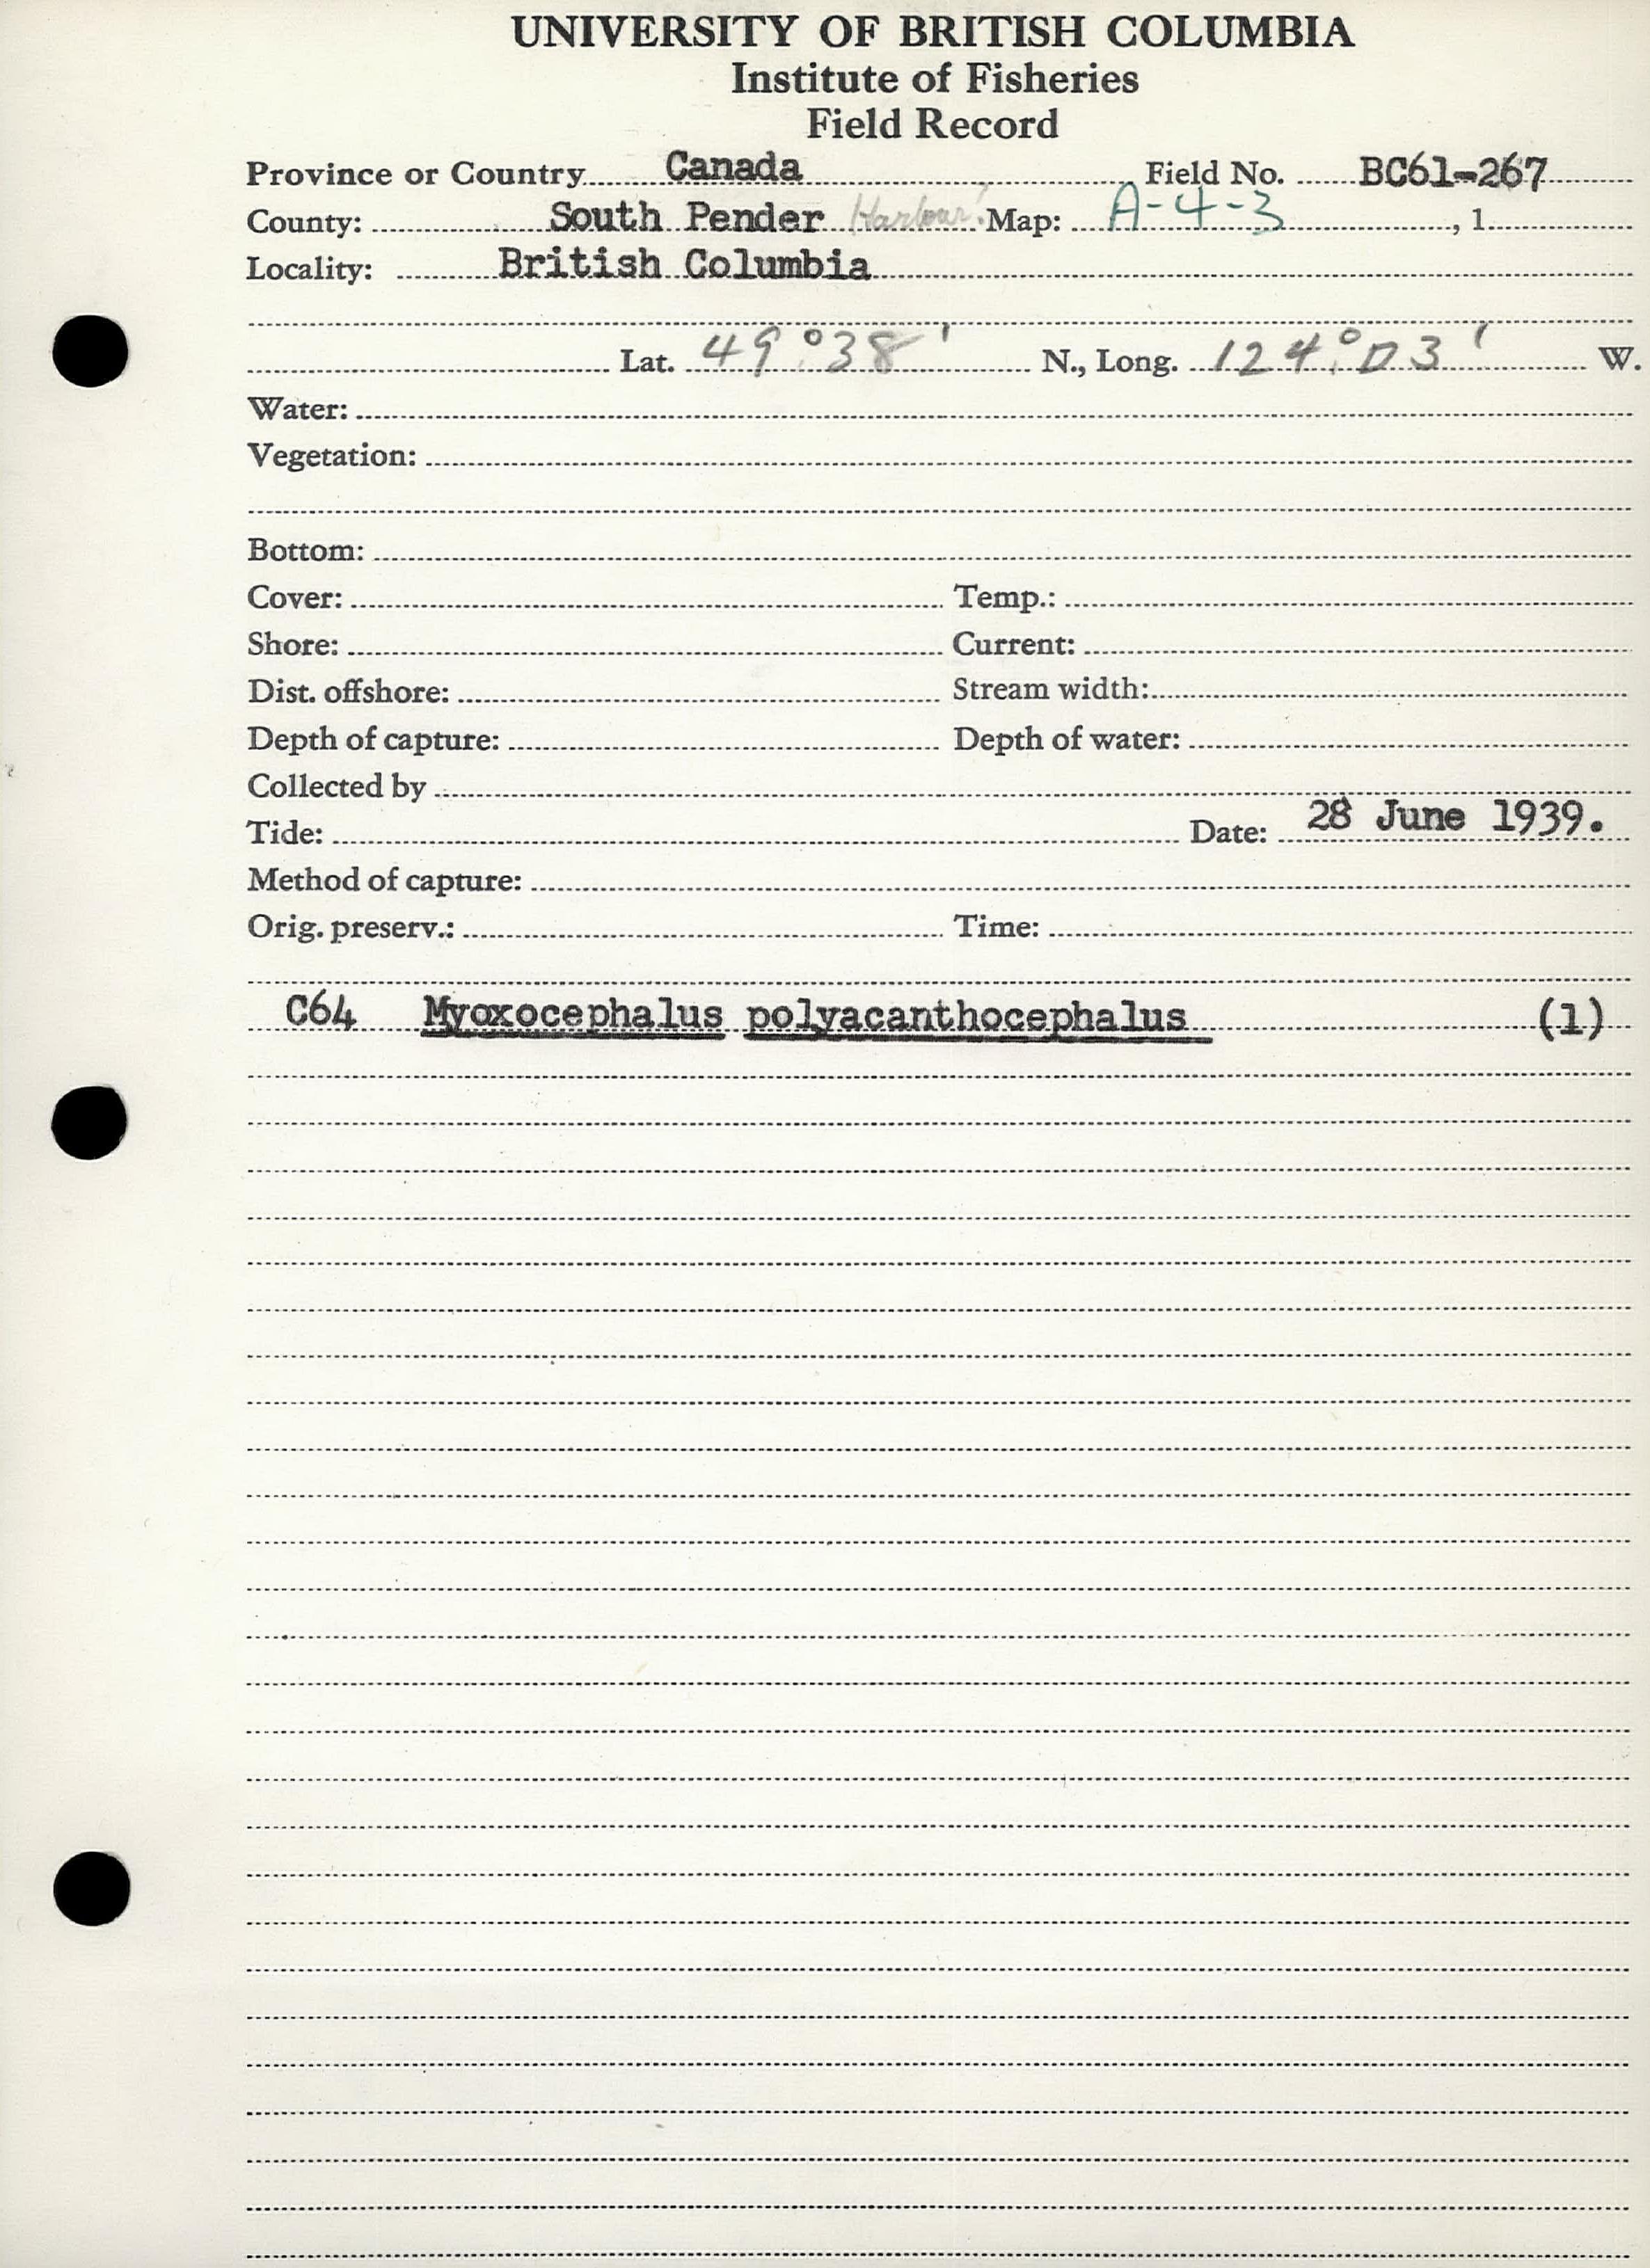 UNIVERSITY OF BRITISH COLUMBIA
Institute of Fisheries
Field Record
Province or Country Canada Field No. BC61-267
County: South Pender Harbour. Map: A-4-3, 1
Locality: British Columbia
Lat. 49°38' N., Long. 124°03' W.
Water:
Vegetation:
Bottom:
Cover: Temp.:
Shore: Current:
Dist. offshore: Stream width:
Depth of capture: Depth of water:
Collected by
Tide: Date: 28 June 1939.
Method of capture:
Orig. preserv.: Time:
C64 Myoxocephalus polyacanthocephalus (1)